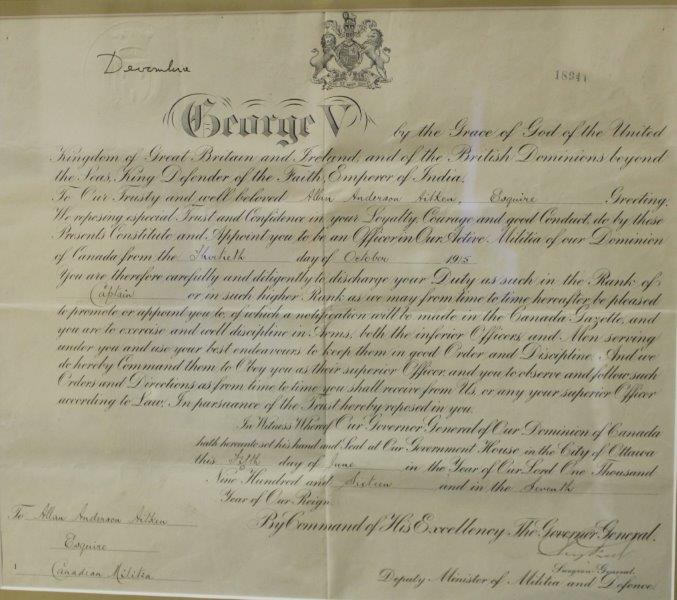 Devonshire
18941
George V by the Grace of God of the United
Kingdom of Great Britain and Ireland, and of the British Dominions beyond
the Seas, King Defender of the Faith, Emperor of India.
To Our Trusty and well beloved Allan Anderson Aitken, Esquire Greeting.
We reposing especial Trust and Confidence in your Loyalty, Courage and good Conduct, do by these
Presents Constitute and Appoint you to be an Officer in Our Active Militia of our Dominion
of Canada from the Thirtieth day of October 1915
You are therefore carefully and diligently to discharge your Duty as such in the Rank of
Captain or in such higher Rank as we may from time to time hereafter be pleased
to promote or appoint you to, of which a notification will be made in the Canada Gazette, and
you are to exercise and well discipline in Arms, both the inferior Officers and Men serving
under you and use your best endeavours to keep them in good Order and Discipline. And we
do hereby Command them to Obey you as their superior Officer, and you to observe and follow such
Orders and Directions as from time to time you shall receive from Us, or any your superior Officer
according to Law, In pursuance of the Trust hereby reposed in you.
In Witness Whereof Our Governor General of Our Dominion of Canada
hath hereunto set his hand and Seal at Our Government House in the City of Ottawa
this Fifth day of June in the Year of Our Lord One Thousand
Nine Hundred and Sixteen and in the Seventh
Year of Our Reign.
By Command of His Excellency The Governor General.
To Allan Anderson Aitken
Esquire
Canadian Militia
Surgeon General.
Deputy Minister of Militia and Defence.